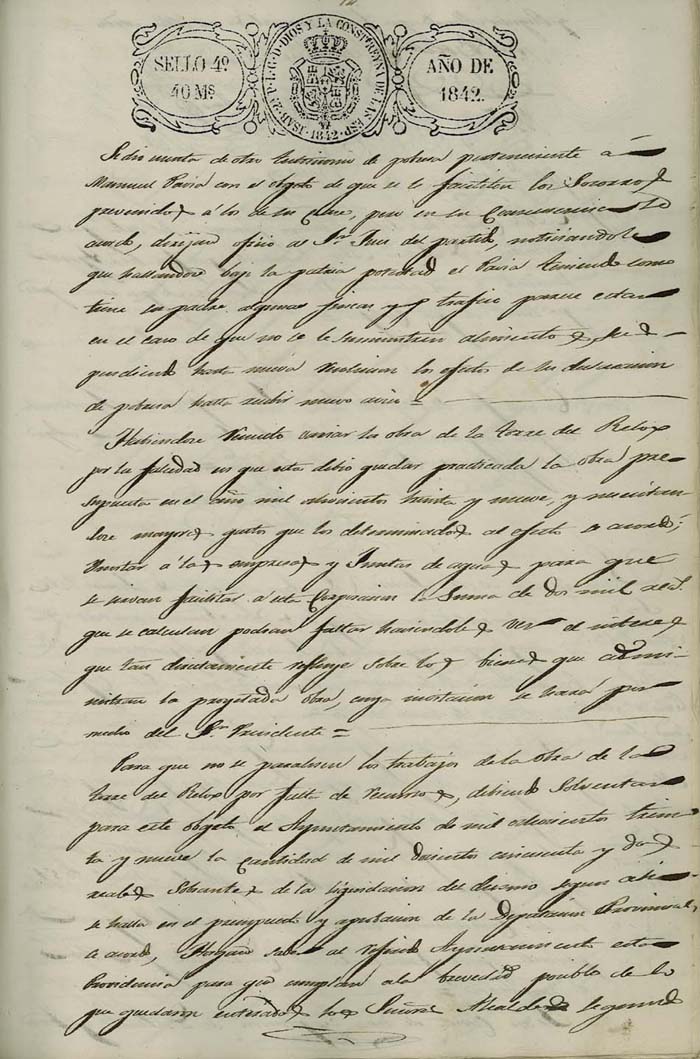 SELLO 4º
40 Mˢ
ISAB. 2ª P. L. G. D. DIOS Y LA CONST. REYNA DE LAS ESP.
1842
AÑO DE
1842.
Se dio cuenta de otro testimonio de pobresa perteneciente á
Manuel Pavia con el objeto de que se le faciliten los Socorros
prevenidos á los de su clase, pero en su Consecuencia Se
acordo, dirijan oficio al Sr. Juez del partido, noticiandole
que hallandose bajo la patria potestad el Pavia teniendo como
tiene su padre algunas fincas y trafico parece estar
en el caso de que no se le suministren alimentos, Sus-
pendiendo hasta nueva resolucion los efectos de la declaracion
de pobresa hasta recibir nuevo aviso =
Habiendose resuelto continuar la obra de la torre del Relox
por la fealdad en que esta debio quedar practicada la obra pre-
supuesta en el año mil ochocientos treinta y nueve, y necesitan-
dose mayores gastos que los determinados al efecto se acordó;
Invitar á las empresas y Juntas de aguas para que
se sirvan facilitar á esta Corporacion la Suma de dos mil real.
que se calculan podran faltar haciendoles ver el interes
que tan directamente refluye sobre los bienes que admi-
nistran la proyectada obra, cuya invitacion se hará por
medio del Sr. Presidente =
Para que no se paralisen los trabajos de la obra de la
torre del Relox por falta de recursos, debiendo Solventar
para este objeto el Ayuntamiento de mil ochocientos trein-
ta y nueve la cantidad de mil doscientos cincuenta y dos
reales Sobrantes de la liquidacion del diesmo segun asi
se halla en el presupuesto y aprobacion de la Diputacion Provincial,
Se acordó, Hagase saber al referido Ayuntamiento esta
Providencia para que cumplan á la brevedad posible de lo
que quedaron enterados los Señores Alcaldes Segundo